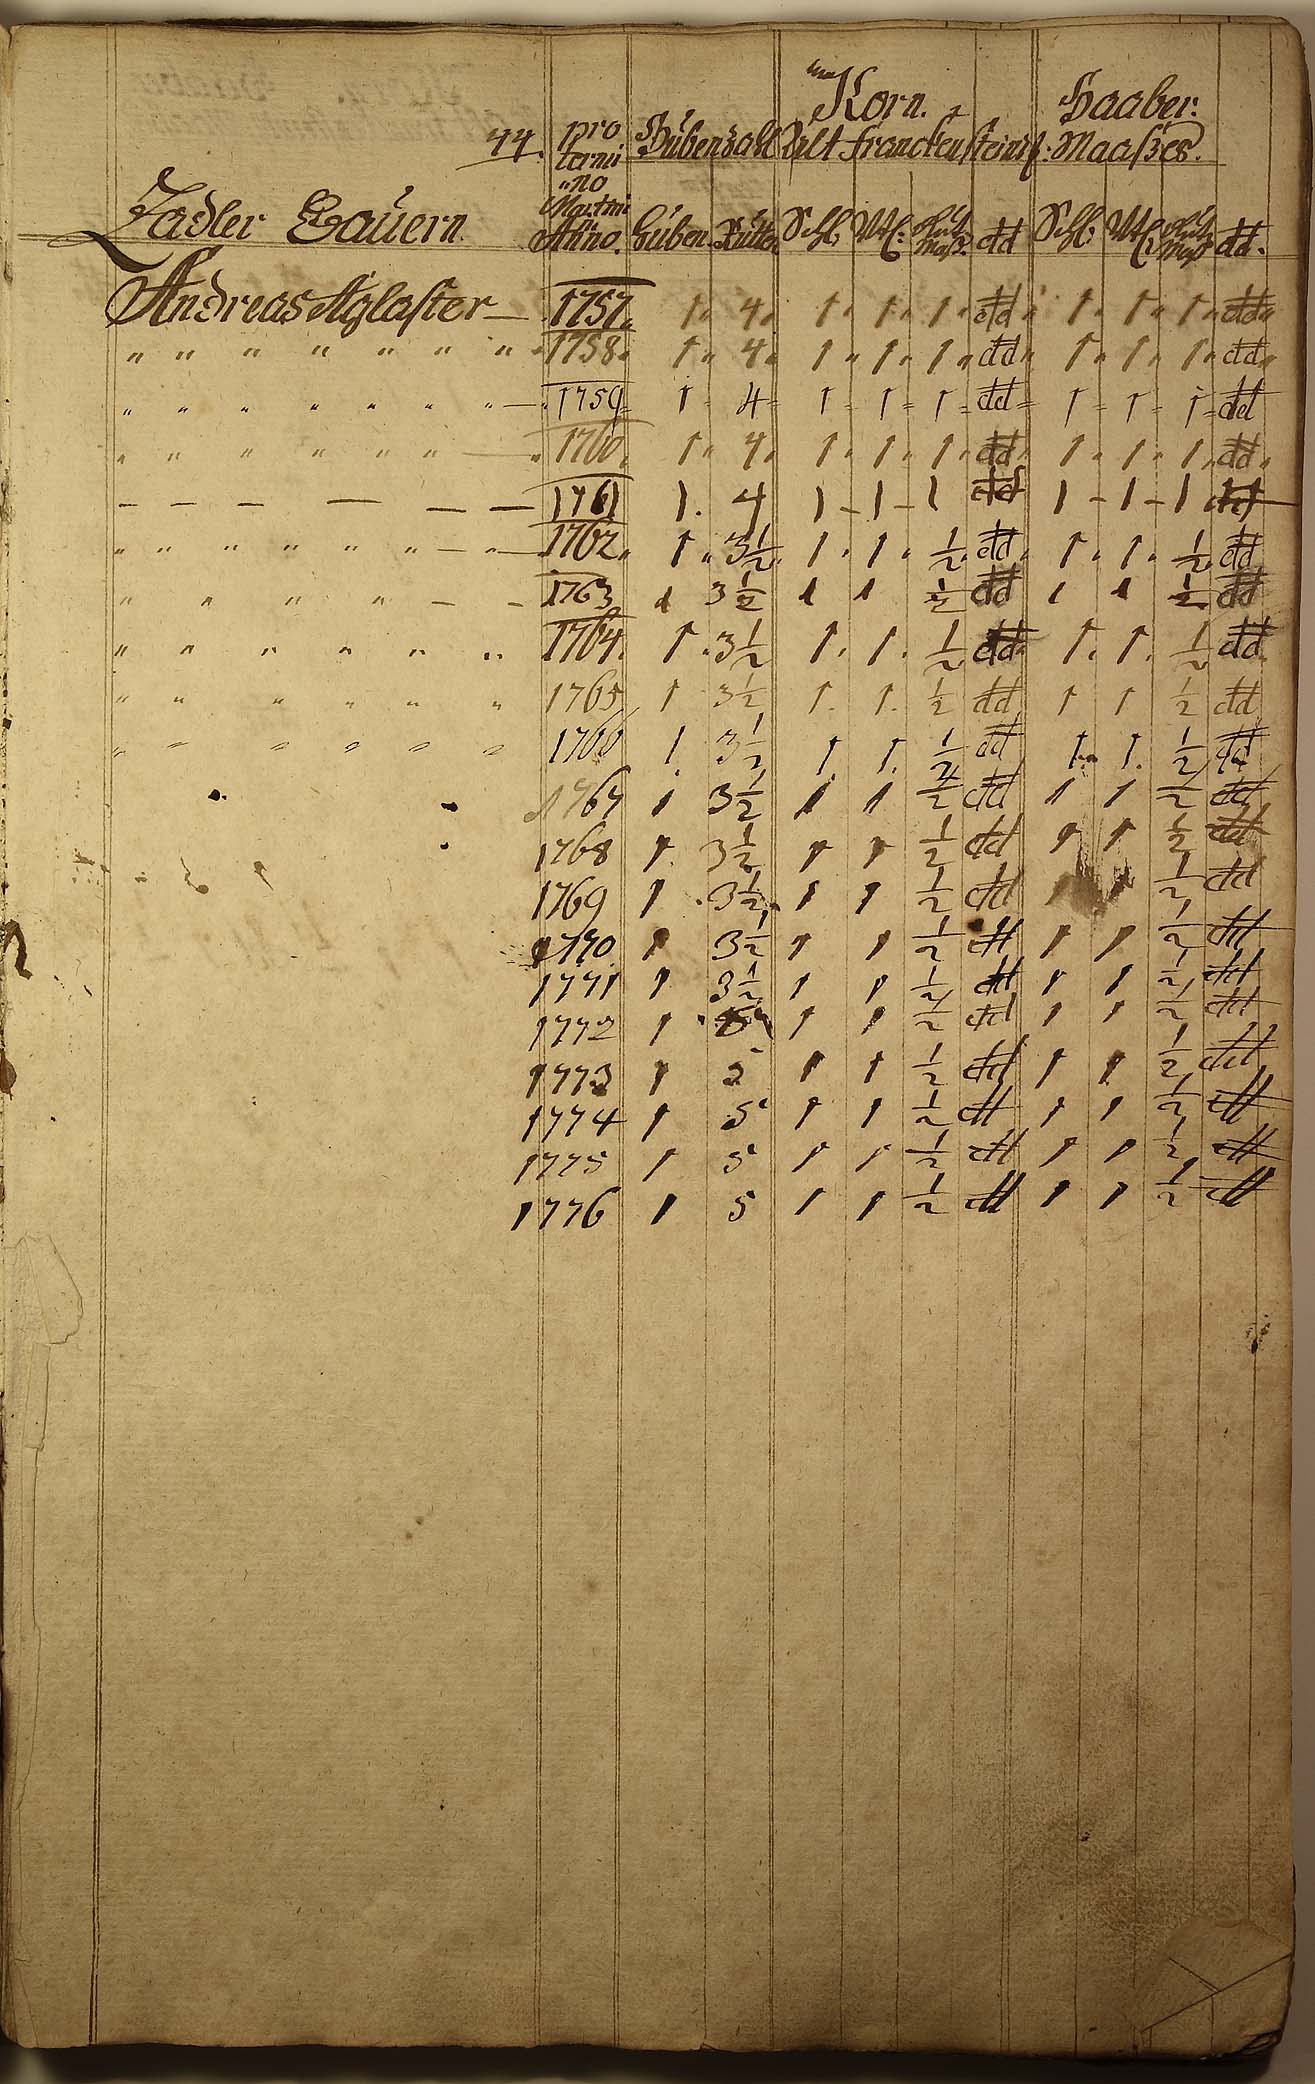 Korn. Haaber.
44. pro Hubenzahl Alt Franckensteinis: Maaßes.
termi
"no
Martini
Zadler Bauern. Anno. Huben. Rutten Schl: Vtl: Maß. dd Schl: Vtl: Maß dd.
Andreas Aglaster — 1757. 1. 4. 1. 1. 1. dd 1. 1. 1. dd
" " " " " " " 1758. 1. 4. 1. 1. 1. dd 1. 1. 1. dd
" " " " " " " — 1759 1 4 1 1 1 dd 1 1 1 dd
" " " " " " — 1760. 1. 4. 1. 1. 1. dd 1. 1. 1. dd.
— — — — — — 1761 1. 4 1 - 1 - 1 dd 1 - 1 - 1 dd
" " " " " " — " — 1762. 1. 3½. 1. 1. ½ dd. 1. 1. ½ dd
" " " " — — 1763 1 3½ 1 1 ½ dd 1 1 ½ dd
" " " " " " 1764. 1. 3½ 1. 1. ½ dd 1. 1. ½ dd
" " " " " " 1765 1 3½ 1. 1. ½ dd 1 1 ½ dd
" " " " " " 1766 1. 3½ 1. 1. ½ dd 1. 1. ½ dd
1767 1 3½ 1 1 ½ dd 1 1 ½ dd
1768 1. 3½ 1 1 ½ dd 1 1 ½ dd
1769 1 3½ 1 1 ½ dd 1 1 ½ dd
1770 1 3½ 1 1 ½ dd 1 1 ½ dd
1771 1 3½ 1 1 ½ dd 1 1 ½ dd
1772 1 1 1 ½ dd 1 1 ½ dd
1773 1 5 1 1 ½ dd 1 1 ½ dd
1774 1 5 1 1 ½ dd 1 1 ½ dd
1775 1 5 1 1 ½ dd 1 1 ½ dd
1776 1 5 1 1 ½ dd 1 1 ½ dd